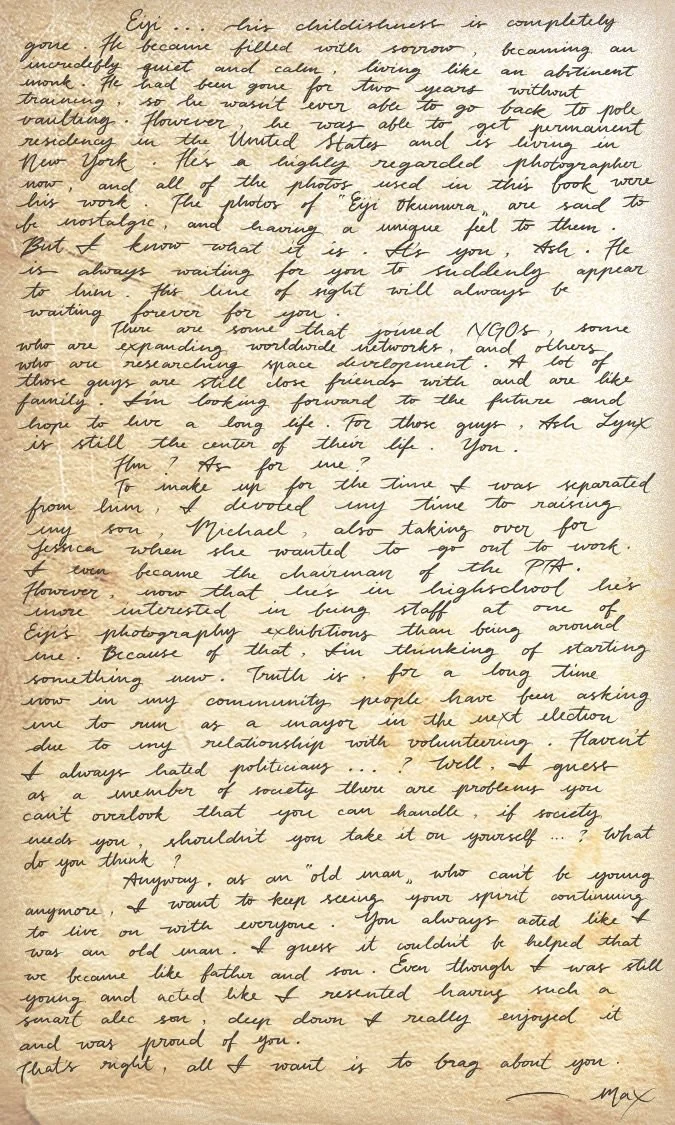 Eiji ... his childishness is completely
gone. He became filled with sorrow, becoming an
incredibly quiet and calm, living like an abstinent
monk. He had been gone for two years without
training, so he wasn't ever able to go back to pole
vaulting. However, he was able to get permanent
residency in the United States and is living in
New York. He's a highly regarded photographer
now, and all of the photos used in this book were
his work. The photos of "Eiji Okumura" are said to
be nostalgic, and having a unique feel to them.
But I know what it is. It's you, Ash. He
is always waiting for you to suddenly appear
to him. His line of sight will always be
waiting forever for you.
There are some that joined NGOs, some
who are expanding worldwide networks, and others
who are researching space development. A lot of
those guys are still close friends with and are like
family. I'm looking forward to the future and
hope to live a long life. For those guys, Ash Lynx
is still the center of their life. You.
Hm? As for me?
To make up for the time I was separated
from him, I devoted my time to raising
my son, Michael, also taking over for
Jessica when she wanted to go out to work.
I even became the chairman of the PTA.
However, now that he's in highschool he's
more interested in being staff at one of
Eiji's photography exhibitions than being around
me. Because of that, I'm thinking of starting
something new. Truth is, for a long time
now in my community people have been asking
me to run as a mayor in the next election
due to my relationship with volunteering. Haven't
I always hated politicians ... ? Well, I guess
as a member of society there are problems you
can't overlook that you can handle, if society
needs you, shouldn't you take it on yourself ... ? What
do you think ?
Anyway, as an "old man" who can't be young
anymore, I want to keep seeing your spirit continuing
to live on with everyone. You always acted like I
was an old man. I guess it couldn't be helped that
we became like father and son. Even though I was still
young and acted like I resented having such a
smart alec son, deep down I really enjoyed it
and was proud of you.
That's right, all I want is to brag about you.
— Max